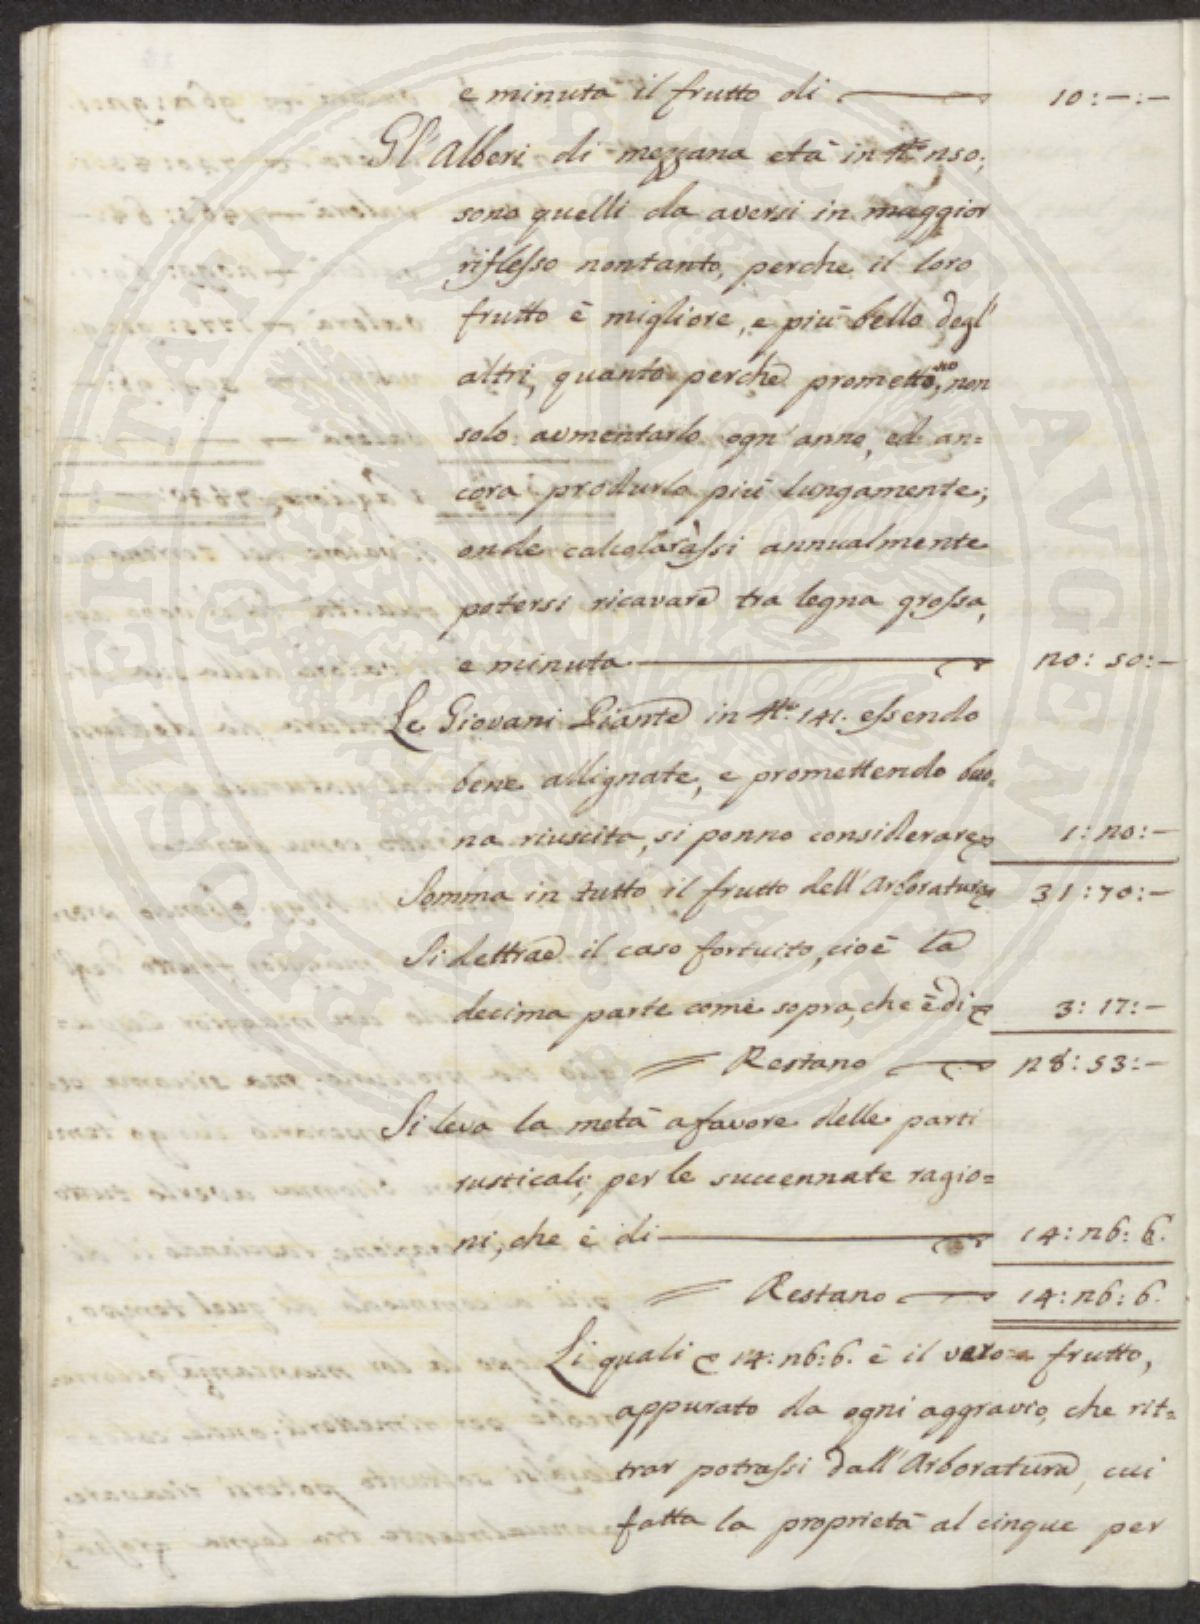 e minuta il frutto di 10:-:-
Gl'Alberi di mezzana età in N.ro 250:
sono quelli da aversi in maggior
riflesso nontanto, perche il loro
frutto è migliore, e più bello degl'
altri, quanto perche promettono, non
solo aumentarlo ogn'anno, ed an=
cora produrlo più lungamente;
onde calcolaràssi annualmente
potersi ricavare tra legna grossa,
e minuta 20:50:-
Le Giovani Piante in N.ro 141. essendo
bene allignate, e promettendo buo=
na riuscita, si ponno considerare 1:20:-
Somma in tutto il frutto dell'Arboratura 31:70:-
Si dettrae il caso fortuito, cioè la
decima parte come sopra, che è di 3:17:-
Restano 28:53:-
Si leva la metà a favore delle parti
rusticali, per le succennate ragio=
ni, che è di 14:26:6.
Restano 14:26:6.
Li quali 14:26:6. è il vero frutto,
appurato da ogni aggravio, che rit=
trar potrassi dall'Arboratura, cui
fatta la proprietà al cinque per
PROSPERITATI PVBLICAE AVGENDAE